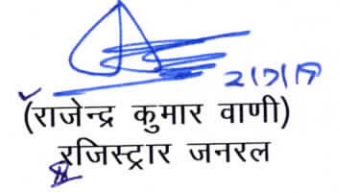 2/7/19
(राजेन्द्र कुमार वाणी)
रजिस्ट्रार जनरल